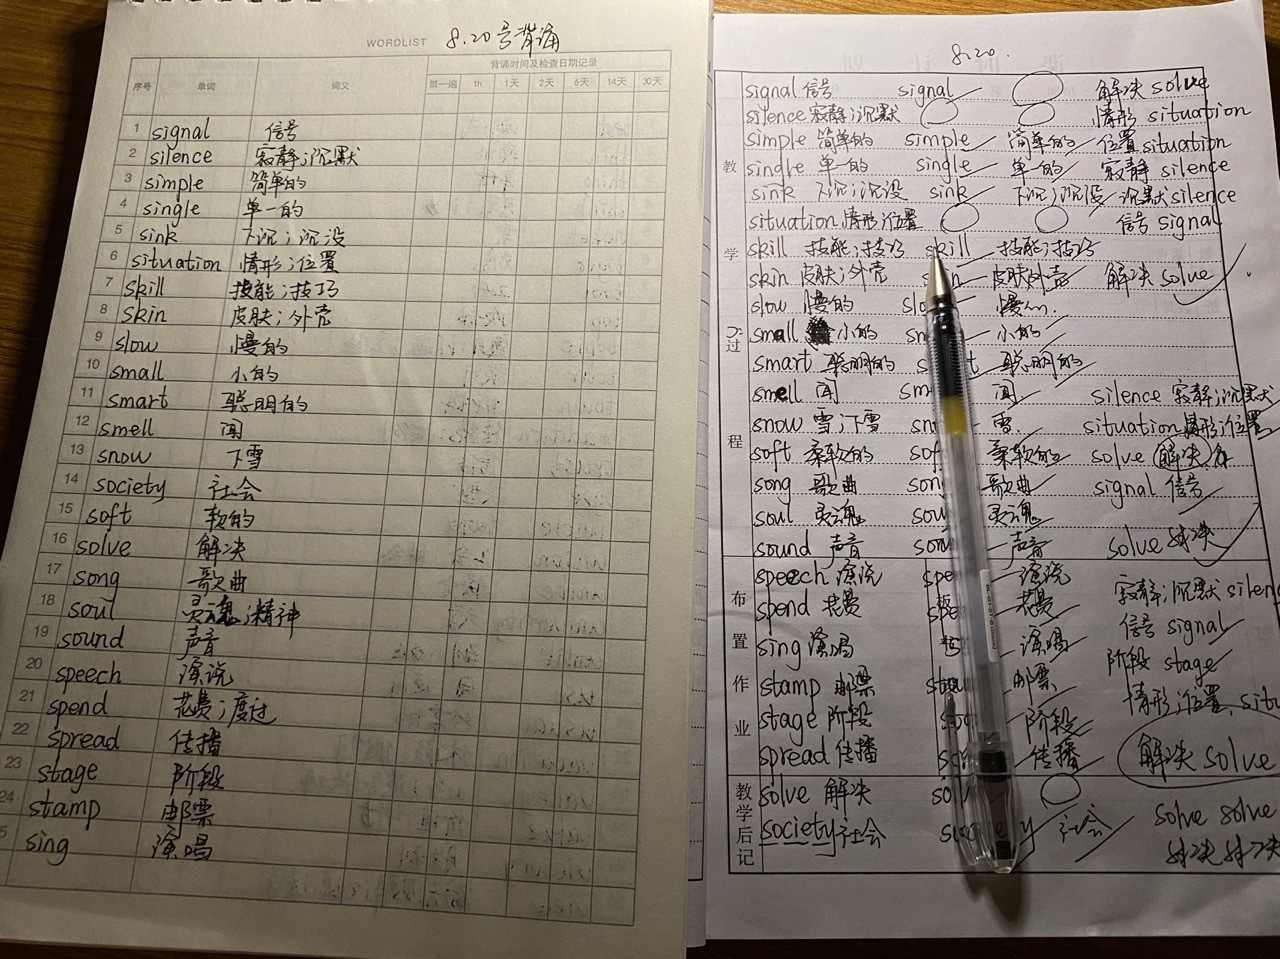 WORDLIST 8.20号背诵
序号 单词 词义 背诵时间及检查日期记录
第一遍 1h 1天 2天 6天 14天 30天
1 signal 信号
2 silence 寂静;沉默
3 simple 简单的
4 single 单一的
5 sink 下沉;沉没
6 situation 情形;位置
7 skill 技能;技巧
8 skin 皮肤;外壳
9 slow 慢的
10 small 小的
11 smart 聪明的
12 smell 闻
13 snow 下雪
14 society 社会
15 soft 软的
16 solve 解决
17 song 歌曲
18 soul 灵魂;精神
19 sound 声音
20 speech 演说
21 spend 花费;度过
22 spread 传播
23 stage 阶段
24 stamp 邮票
5 sing 演唱
8.20.
教学过程
signal 信号 signal 解决 solve
silence 寂静;沉默 情形 situation
simple 简单的 simple 简单的 位置 situation
single 单一的 single 单一的 寂静 silence
sink 下沉;沉没 sink 下沉;沉没 沉默 silence
situation 情形;位置 信号 signal
skill 技能;技巧 skill 技能;技巧
skin 皮肤;外壳 皮肤外壳 解决 solve
slow 慢的
small 小的 小的
smart 聪明的 聪明的
smell 闻 闻 silence 寂静;沉默
snow 雪;下雪 雪. situation 情形;位置
soft 柔软的 柔软的 solve 解决
song 歌曲 歌曲 signal 信号
soul 灵魂 灵魂
sound 声音 声音 solve 解决
布置作业
speech 演说 演说 寂静;沉默 silen
spend 花费 花费 信号 signal
sing 演唱 演唱 阶段 stage
stamp 邮票 邮票 情形;位置. situ
stage 阶段 阶段
spread 传播 传播 解决 solve
教学后记
solve 解决
society 社会 社会 solve solve
解决 解决